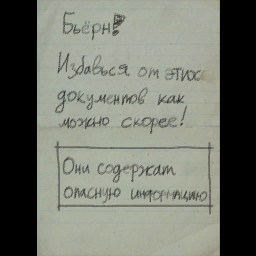 Бьёрн!
Избавься от этих
документов как
можно скорее!
Они содержат
опасную информацию